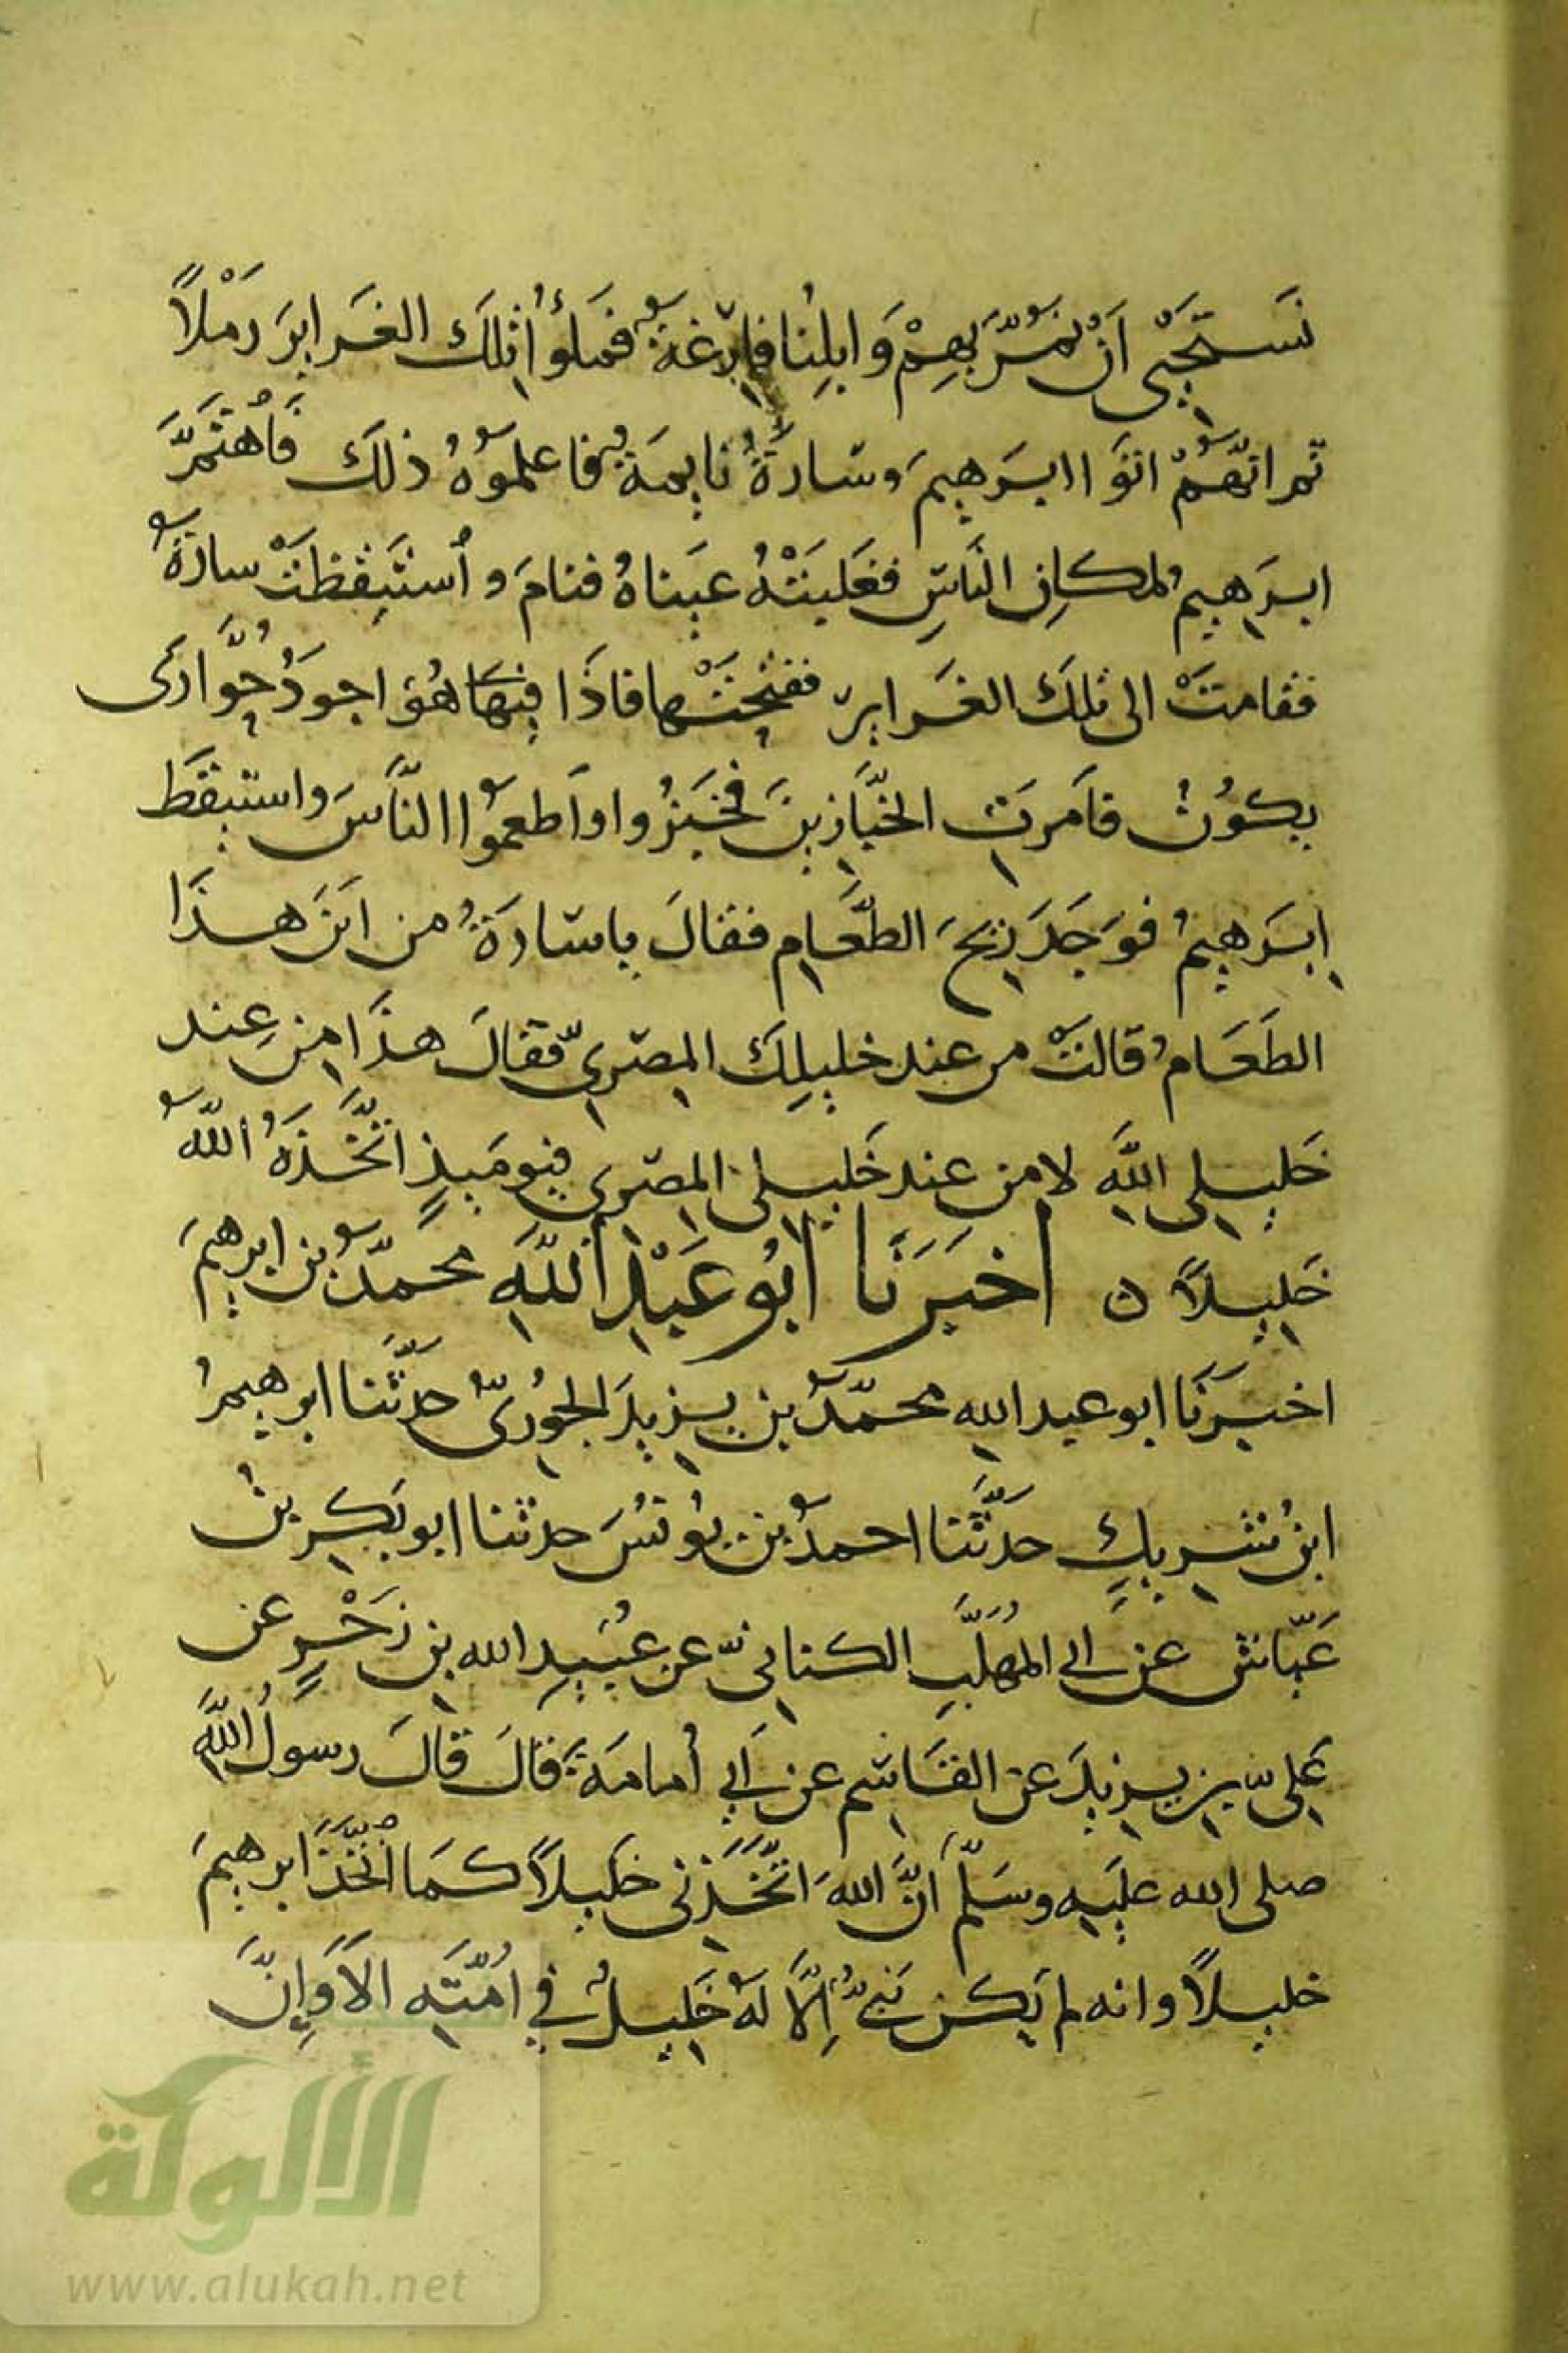 نَستَحْيِى اَنْ نمُرَّ بِهِمْ وَابِلُنا فارِغةٌ فَمَلؤُا تِلكَ الغَرَايرَ رَمْلاً
ثم انّهُمْ اتَوا ابرَهيمَ وسَارَةُ نايِمَةٌ فاعلمُوهُ ذلكَ فَاهتَمَّ
ابرَهِيمُ لمكانِ النَّاسِ فغَلبَتْهُ عَينَاهُ فنامَ واستَيقظَتْ سارَةُ
فقامَتْ الى تلكَ الغَرايرِ ففتحَتْها فاذَا فِيهَا هُوَ اجوَدُ حُوَّارَى
يكُونُ فامَرَتِ الخبَّازِينَ فخَبَزُوا واَطعمُوا النَّاسَ واستيقظ
اِبرَهيمُ فوَجَدَ رِيحَ الطَّعَامِ فقالَ ياسَارَةُ من اَينَ هذَا
الطَعَامُ قالتْ من عند خليلِكَ المِصْرِيِّ فقالَ هذَا مِن عِند
خَلِيلِى اللَّهِ لا مِن عِند خَلِيلِى المِصْرى فيومَيذٍ اتَّخَذَهُ اللّهُ
خَلِيلاً ه اخبَرَنَا ابُو عَبْدِ اللَّهِ محمَّدُ بن ابرهيمَ
اخبرَنَا ابو عبد الله محمَّدُ بن يزيدَ الجُورىُّ حدَّثَنا ابرهيمُ
ابنُ شريكٍ حدَّثَنا احمدُ بن يُونُسَ حدثنا ابو بَكرِ بنُ
عَيَّاش عن ابى المُهَلَّبِ الكنانىِّ عن عُبَيدِ الله بن زَحْرٍ عن
عَلىِّ بن يزيدَ عن القَاسِم عن اَبى اُمامَةَ قالَ قالَ رسولُ اللَّهِ
صلى الله عليه وسَلَّم اَنَّ اللهَ اتَّخَذَنى خلِيلاً كمَا اتَّخَذَ ابرهيمَ
خليلاً وانه لم يَكن نَبىٌّ اِلَّا لهُ خَلِيلٌ فى اُمَّتِهِ الاَ وَاِنَّ
الألوكة
www.alukah.net